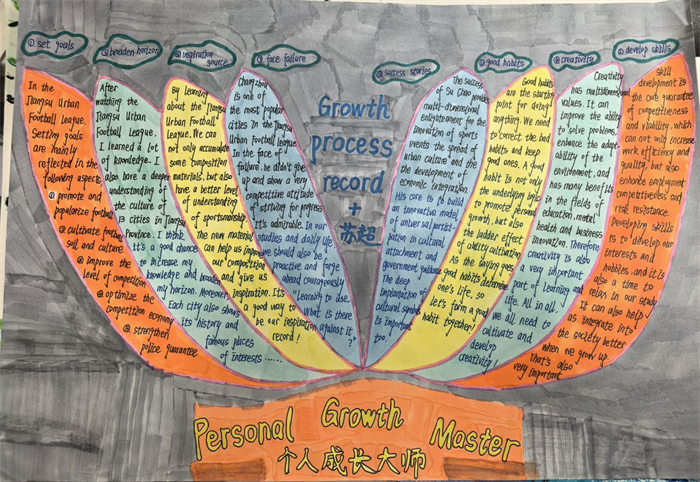 ① set goals
② broaden horizon
③ inspiration
source
④ face failure
⑤ success stories
⑥ good habits
⑦ creativity
⑧ develop skills
In the
Jiangsu Urban
Football league.
Setting goals
are mainly
reflected in the
following aspects
① promote and
popularize football
② cultivate football
soil and culture
③ improve the
level of competition
④ optimize the
competition economy
⑤ strengthen
police guarantee
After
watching the
Jiangsu Urban
Football league,
I learned a lot
of knowledge. I
also have a deeper
understanding of
the culture of
13 cities in Jiangsu
Province. I think
it's a good chance
to increase my
knowledge and broaden
my horizon. Moreover,
Each city also shows
its history and
famous places
of interests ......
By learning
about the Jiangsu
Urban Football
league. We can
not only accumulate
some composition
materials, but also
have a better level
of understanding
of sportsmanship.
The new material
can help us improve
our composition
and give us
inspiration. It's
a good way to
be our inspiration
record!
Changzhou
is one of
the most popular
cities in the Jiangsu
Urban Football league.
In the face of
failure, he didn't give
up and show a very
competitive attitude
of striving for progress.
It's admirable. In our
studies and daily life,
we should also be
proactive and forge
ahead courageously
"Learning to use
what is there
against it."
Growth
process
record
+
苏超
The success
of Su Chao provides
multi-dimensional
enlightenment for the
innovation of sports
events the spread of
urban culture and the
the development of
economic integration.
His core is to build
an innovative model
of universal partici
pation in cultural
attachment and
government guidance
The deep
implantation of
cultural symbols
is important
too.
Good habits
are the starting
point for doing
anything. We need
to correct the bad
habits and keep
good ones. A good
habit is not only
the underlying logic
to promote personal
growth, but also
the ladder effect
of ability cultivating
As the saying goes
good habits determine
one's life, so
let's form a good
habit together!
Creativity
has multidimensional
values. It can
improve the ability
to solve problems,
enhance the adapt
ability of the
environment, and
has many benefits
in the fields of
education, mental
health and business
innovation. Therefore
creativity is also
a very important
part of learning and
life. All in all,
we all need to
cultivate and
develop
creativity!
Skill
development is
the core guarantee
of competitiveness
and viability, which
can not only increase
work efficiency and
quality, but also
enhance employment
competitiveness and
risk resistance.
Developing skills
is to develop our
interests and
hobbies, and it is
also a time to
relax in our study.
It can also help
us integrate into
the society better
when we grow up.
That's also
very important
Personal Growth Master
个人成长大师